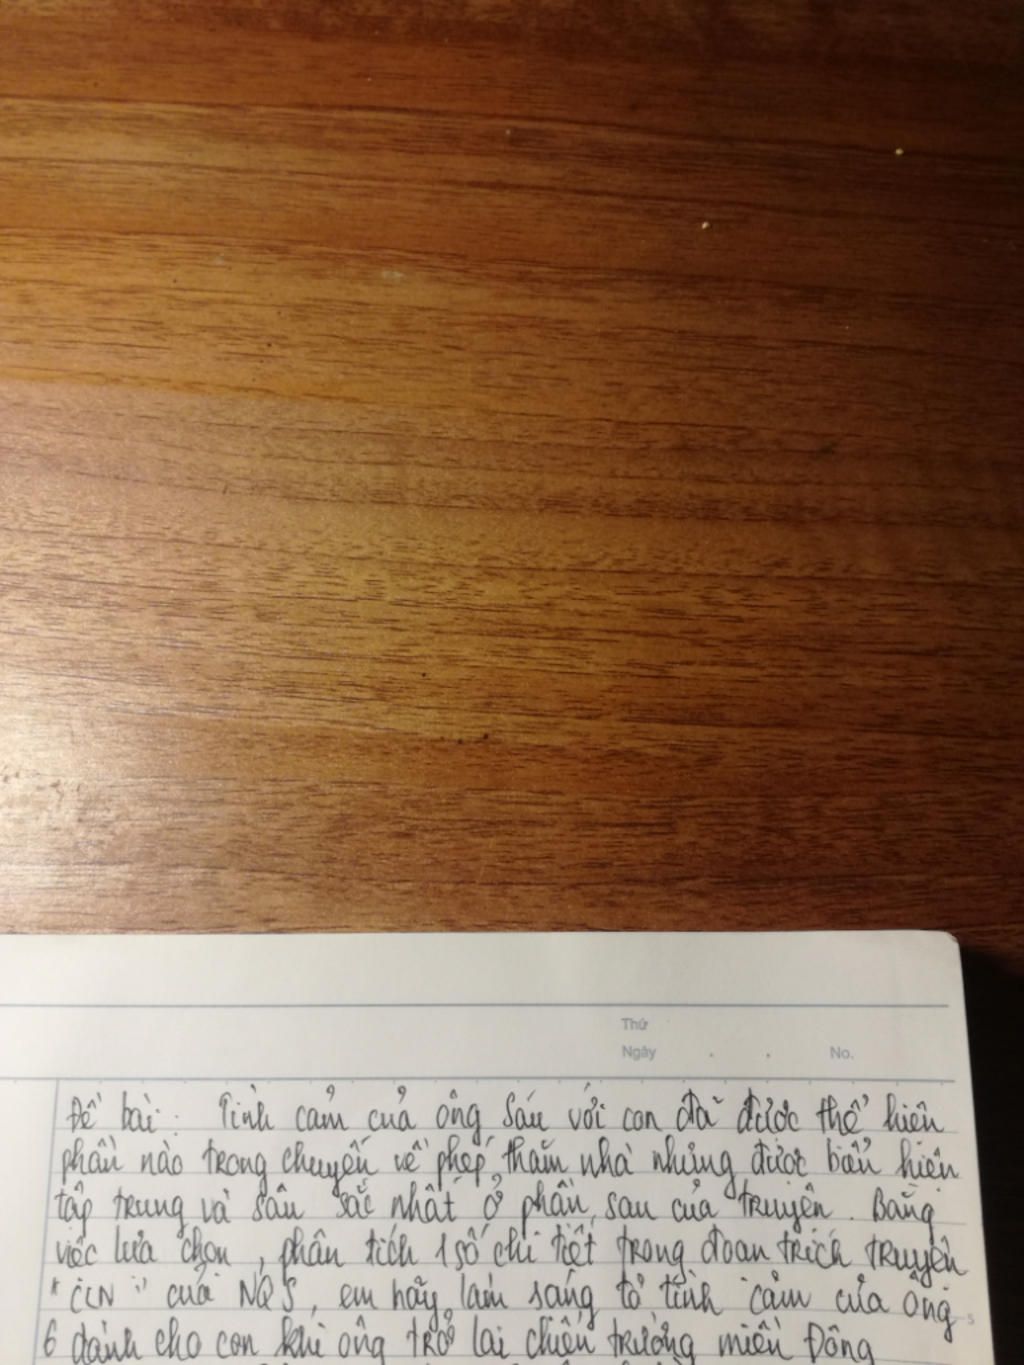 Thứ
Ngày . . No.
Đề bài : Tình cảm của ông Sáu với con đã được thể hiện
phần nào trong chuyến về phép, thăm nhà nhưng được biểu hiện
tập trung và sâu sắc nhất ở phần sau của truyện. Bằng
việc lựa chọn, phân tích 1 số chi tiết trong đoạn trích truyện
"CLN" của NQS, em hãy làm sáng tỏ tình cảm của ông
6 dành cho con khi ông trở lại chiến trường miền Đông